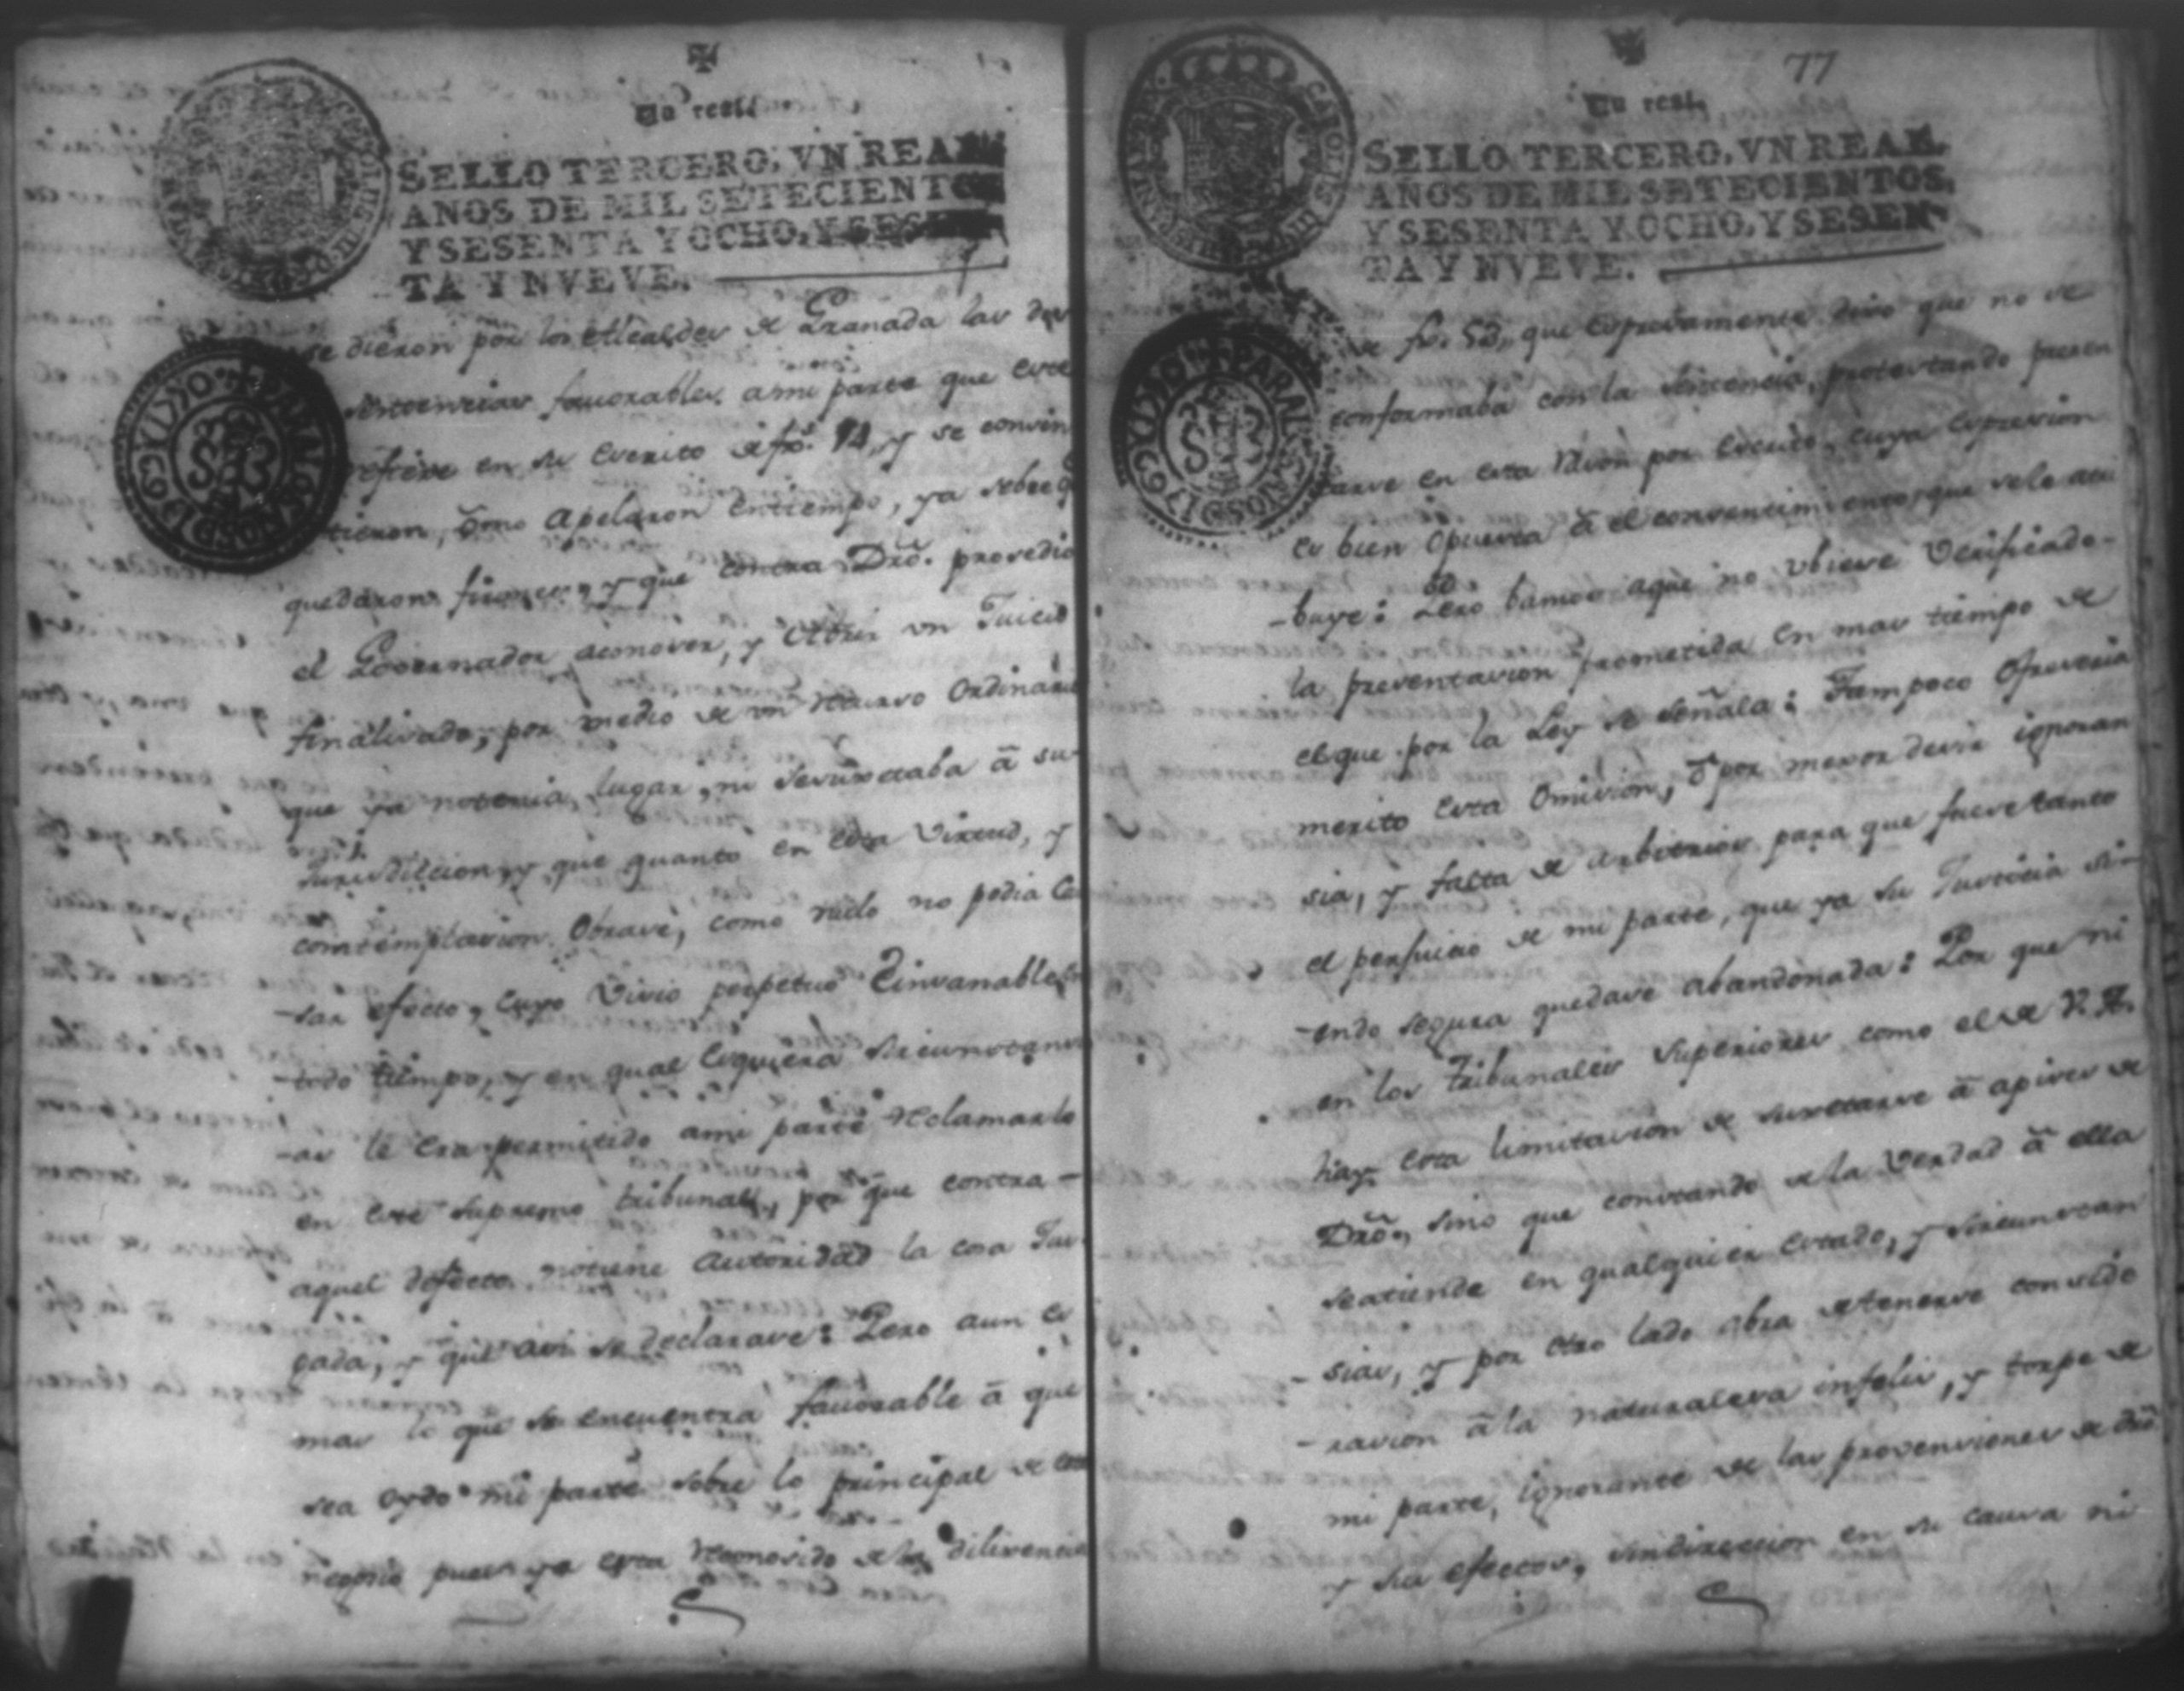 Un real.
SELLO TERCERO, VN REAL
AÑOS DE MIL SETECIENTOS
Y SESENTA Y OCHO, Y SESEN
TA Y NVEVE.
se dieron por los Alcaldes de Granada las dos
sentencias favorables ami parte que este
refiere en su escrito de fxs. y se convin
tieron, ô no apelaron entiempo, ya sobre q
quedaron firmes, y que contra Dro. prosedio
el Governador aconoser, y Abrir un Juicio
finalisado, por medio de un recurso Ordinario
que ya notenia lugar, ni sesusetaba â su
Jurisdiccion, y que quanto en esta Virtud, y
contemplasion Obrase, como nulo no podia Cau
-sar efecto, cuyo Visio perpetuo Einsanable, en
-todo tiempo, y en qual esquiera sircunstansi
-as le era permitido ami parte reclamarlo
en este supremo tribunal, por que contra-
aquel defecto notiene autoridad la cosa Jus
gada, y que asi se declarase: Pero aun es
mas lo que se encuentra favorable â que
sea oydo mi parte sobre lo principal de este
negosio pues ya esta reconosido de las dilixencias
77
Un real.
SELLO TERCERO, VN REAL.
AÑOS DE MIL SETECIENTOS,
Y SESENTA Y OCHO, Y SESEN-
TA Y NVEVE.
de fxs. 53, que expresamente dixo que no se
conformaba con la sentencia, protestando presen
tarse en esta por escrito, cuya expresion
es bien Opuesta â el consentimiento que se le atri
-buye: Pero bamos aque no Vbiese Verificado-
la presentasion prometida en mas tiempo de
el que por la Ley se señala: Tampoco Ofreseria
merito esta Omision, ô por mexor desir ignoran
sia, y falta de arbitrios para que fuese tanto
el perjuicio de mi parte, que ya su Justicia si-
-endo segura quedase abandonada: Por que ni
en los tribunales superiores como el de V. A.
hay esta limitasion de susetarse â apises de
Dro, sino que constando de la Verdad â ella
seatiende en qualquier estado, y sircunstan
-sias, y por otro lado abra detenerse consido
-rasion âla naturalesa infelis, y torpe de
mi parte, ignorante de las provensiones de dro
y sus efectos, sindireccion en su causa ni